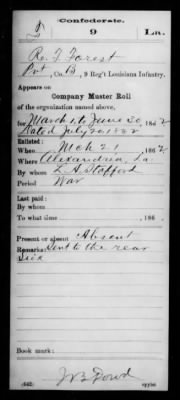 Confederate.
9 La.
R. T. Forest
Pvt, Co. B, 9 Reg't Louisiana Infantry.
Appears on
Company Muster Roll
of the organization named above,
for March 1, to June 30, 1862
Dated July 20 1862
Enlisted:
When Mch 21, 1862
Where Alexandria, La
By whom L. A. Stafford
Period War
Last paid:
By whom
To what time , 186 .
Present or absent Absent
Remarks: Sent to the rear
Sick
Book mark:
(642)
Copyist.